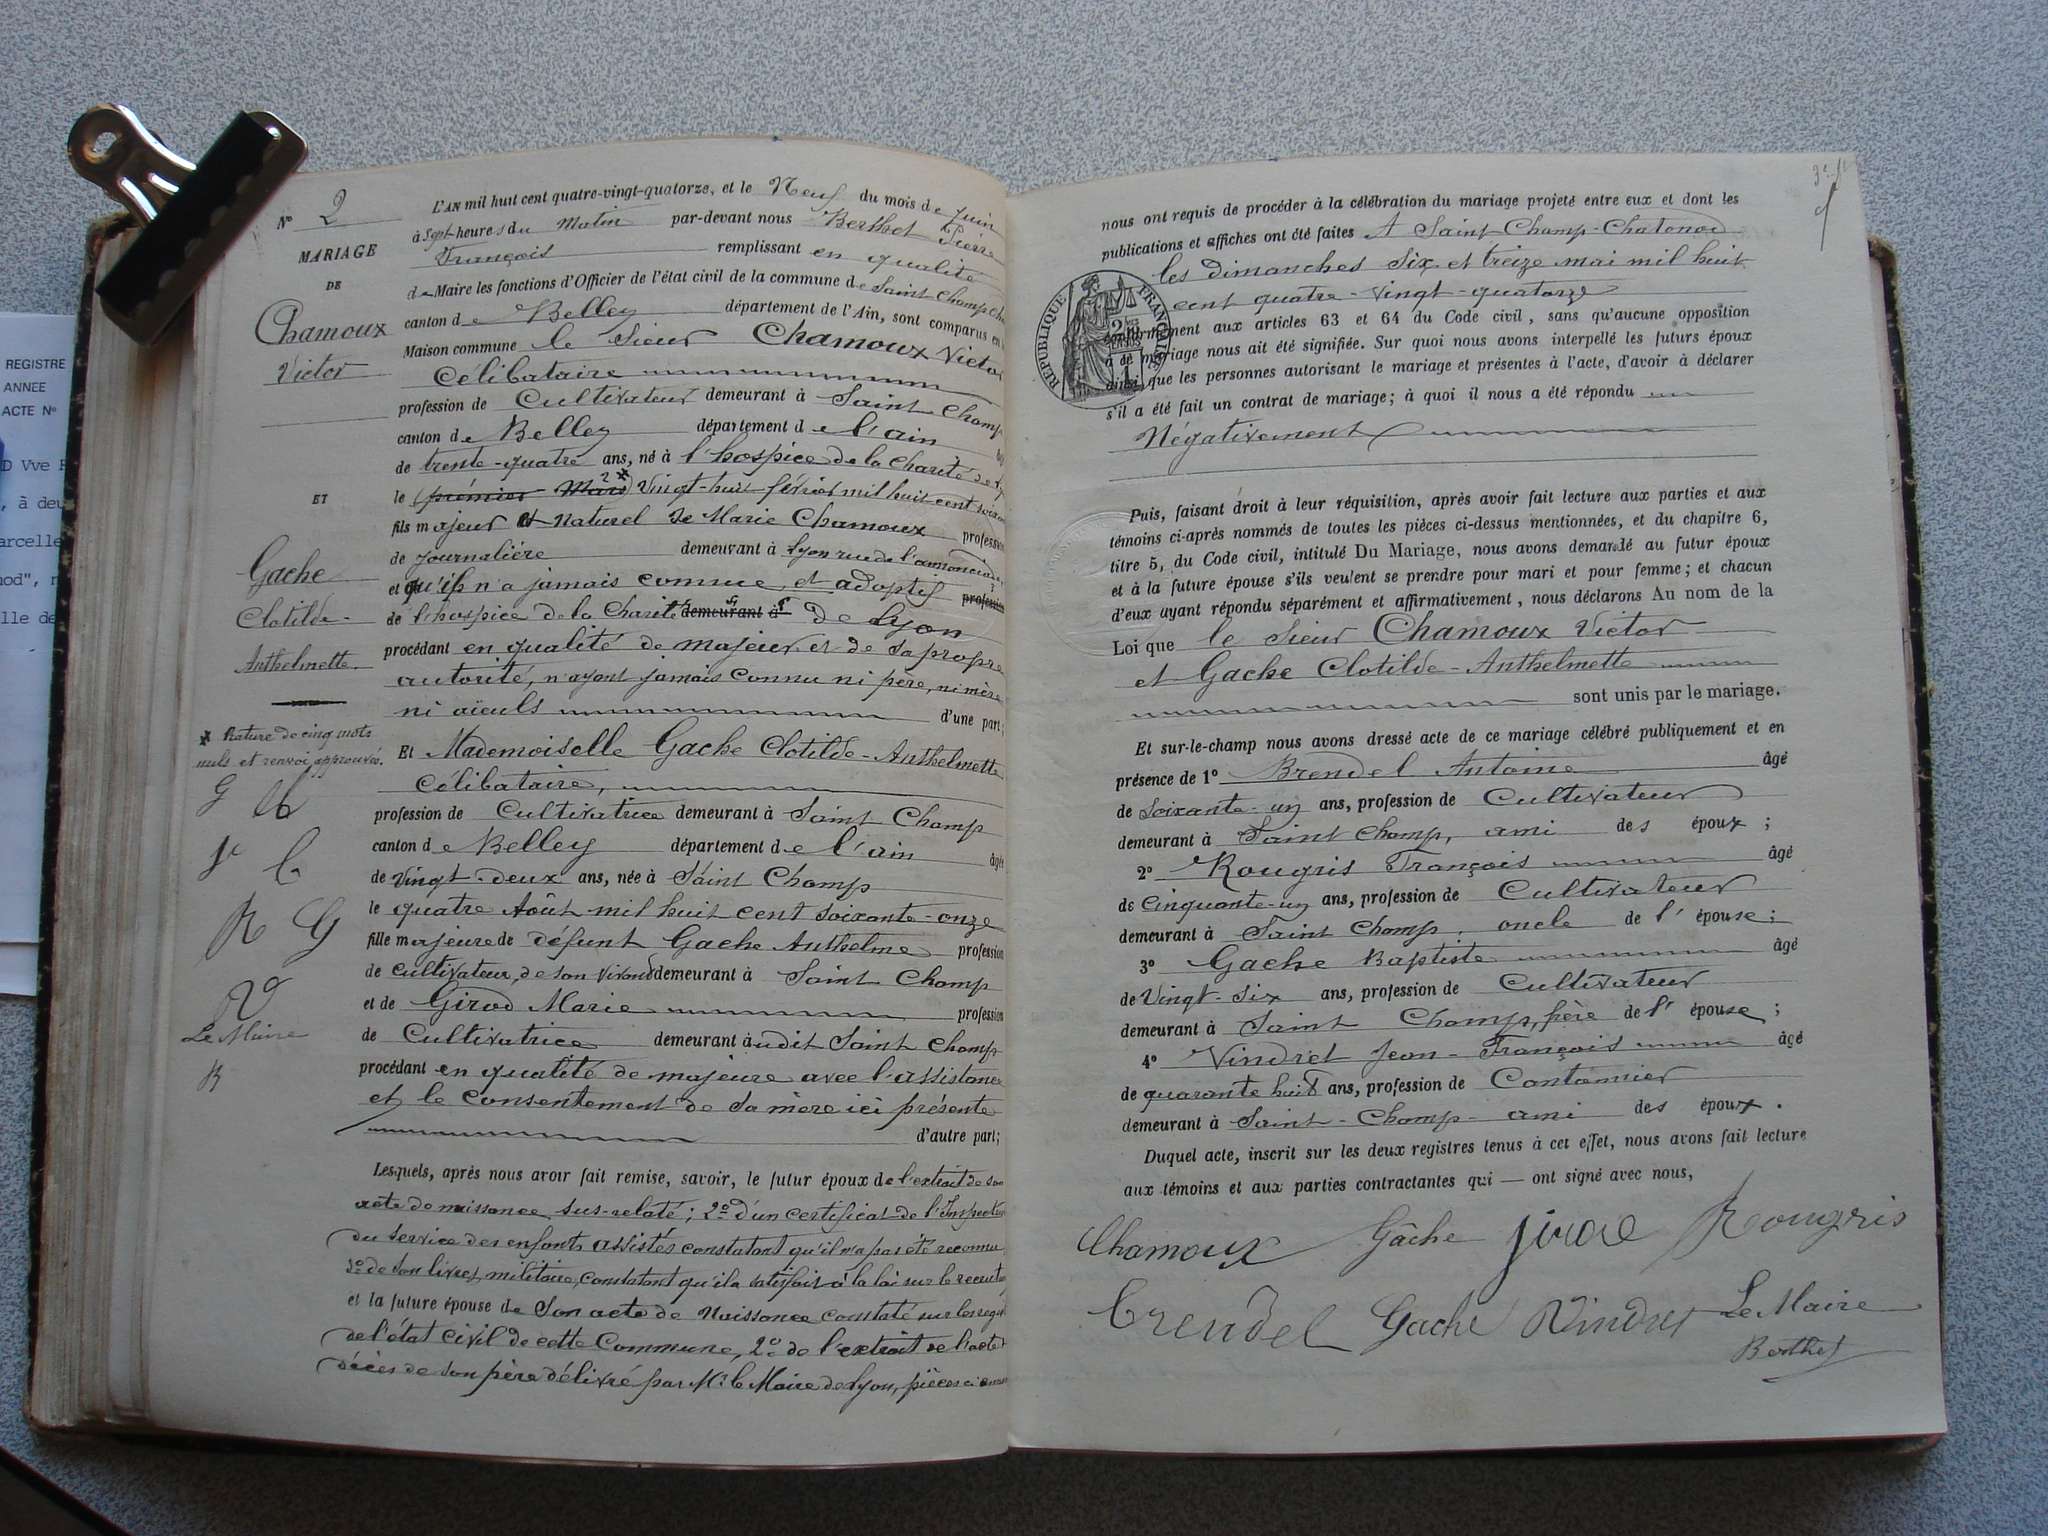 REGISTRE
ANNEE
ACTE N°
D Vve
, à deu
arcelle
nod", n
lle de
N° 2
MARIAGE
DE
Chamoux
Victor
ET
Gache
Clotilde-
Anthelmette.
* Rature de cinq mots
nuls et renvoi approuvés.
G
R G
V
Le Maire
B
L'AN mil huit cent quatre-vingt-quatorze, et le Neuf du mois de juin
à Sept heures du Matin par-devant nous Berthet Pierre
François remplissant en qualité
de Maire les fonctions d'Officier de l'état civil de la commune de Saint Champ Cha
canton de Belley département de l'Ain, sont comparus en
Maison commune le Sieur Chamoux Victor
Célibataire
profession de Cultivateur demeurant à Saint Champ
canton de Belley département de l'ain
de trente-quatre ans, né à l'hospice de la Charité de
le (premier Mars) Vingt-huit février mil huit cent soixan
fils majeur et Naturel de Marie Chamoux profession
de journalière demeurant à Lyon rue de l'annonciade
et qu'il n'a jamais connue, et adoptif profession
de l'hospice de la Charité demeurant à de Lyon
procédant en qualité de majeur et de sa propre
autorité, n'ayant jamais connu ni père, ni mère
ni aïeuls d'une part;
Et Mademoiselle Gache Clotilde-Anthelmette
Célibataire,
profession de Cultivatrice demeurant à Saint Champ
canton de Belley département de l'ain âgée
de Vingt-deux ans, née à Saint Champ
le quatre Août mil huit cent soixante-onze
fille majeure de défunt Gache Anthelme profession
de Cultivateur, de son vivant demeurant à Saint Champ
et de Girod Marie profession
de Cultivatrice demeurant audit Saint Champ
procédant en qualité de majeure avec l'assistance
et le consentement de sa mère ici présente
d'autre part;
Lesquels, après nous avoir fait remise, savoir, le futur époux de l'extrait de son
acte de naissance sus-relaté; 2° d'un certificat de l'Inspecteur
du service des enfants assistés constatant qu'il n'a pas été reconnu
3° de son livret militaire, constatant qu'il a satisfait à la loi sur le recrute
et la future épouse de son acte de Naissance constaté sur les regis
de l'état civil de cette Commune, 2° de l'extrait de l'acte de
décès de son père délivré par Mr le Maire de Lyon, pièces ci
nous ont requis de procéder à la célébration du mariage projeté entre eux et dont les
publications et affiches ont été faites A Saint Champ-Chatonod
les dimanches six et treize mai mil huit
cent quatre-vingt-quatorze
RÉPUBLIQUE FRANÇAISE
conformément aux articles 63 et 64 du Code civil, sans qu'aucune opposition
à ce mariage nous ait été signifiée. Sur quoi nous avons interpellé les futurs époux
ainsi que les personnes autorisant le mariage et présentes à l'acte, d'avoir à déclarer
s'il a été fait un contrat de mariage; à quoi il nous a été répondu
Négativement
Puis, faisant droit à leur réquisition, après avoir fait lecture aux parties et aux
témoins ci-après nommés de toutes les pièces ci-dessus mentionnées, et du chapitre 6,
titre 5, du Code civil, intitulé Du Mariage, nous avons demandé au futur époux
et à la future épouse s'ils veulent se prendre pour mari et pour femme; et chacun
d'eux ayant répondu séparément et affirmativement, nous déclarons Au nom de la
Loi que le Sieur Chamoux Victor
et Gache Clotilde-Anthelmette
sont unis par le mariage.
Et sur-le-champ nous avons dressé acte de ce mariage célébré publiquement et en
présence de 1° Brendel Antoine âgé
de soixante-un ans, profession de Cultivateur
demeurant à Saint Champ, ami des époux ;
2° Rougris François âgé
de Cinquante-un ans, profession de Cultivateur
demeurant à Saint Champ, oncle de l'épouse ;
3° Gache Baptiste âgé
de Vingt-six ans, profession de Cultivateur
demeurant à Saint Champ, père de l'épouse ;
4° Vindret Jean-François âgé
de quarante huit ans, profession de Cantonnier
demeurant à Saint-Champ- ami des époux.
Duquel acte, inscrit sur les deux registres tenus à cet effet, nous avons fait lecture
aux témoins et aux parties contractantes qui — ont signé avec nous,
Chamoux Gâche Rougris
Brendel Gache Vindret Le Maire
Berthet